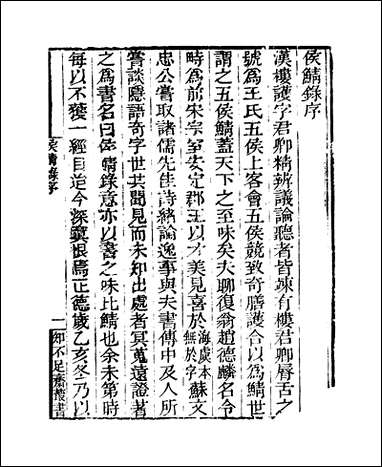 侯鯖錄序
漢樓護字君卿精辨議論聽者皆竦有樓君卿脣舌之
號爲王氏五侯上客會五侯競致奇膳護合以爲鯖世
謂之五侯鯖蓋天下之至味矣大聊復翁趙德麟名令
時爲前宋宗室安定郡王以才美見喜於海虞本無於字蘇文
忠公嘗取諸儒先生詩緒論逸事與夫書傳中及人所
嘗談隱語奇字世共聞見而未知出處者冥蒐遠證著
之爲書名曰侯鯖錄意亦以書之味比鯖也余未第時
每以不獲一經目迨今深冀恨焉正德歲乙亥冬乃以
侯鯖錄序
一
知不足齋叢書